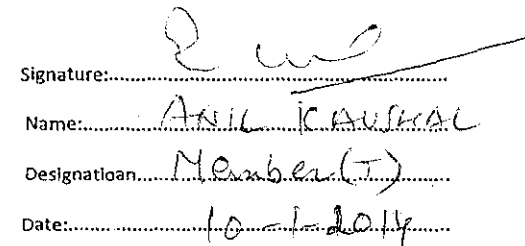 Signature:
Name: ANIL KAUSHAL
Designatioan Member (T)
Date: 10-1-2014